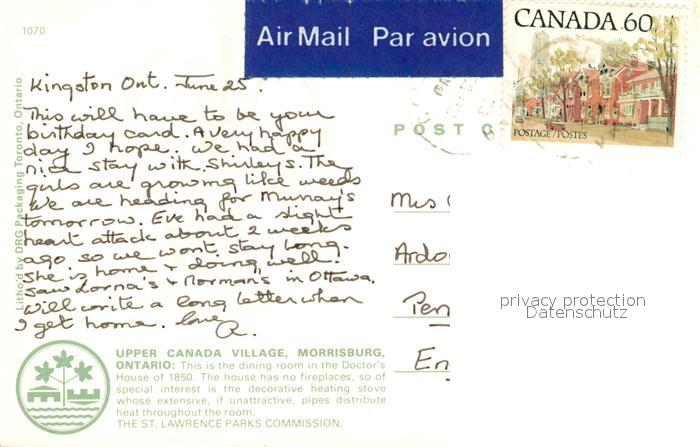 1070
Air Mail Par avion
CANADA 60
POSTAGE/POSTES
Kingston Ont. June 25.
This will have to be your
birthday card. A very happy
day I hope. We had a
nice stay with Shirleys. The
girls are growing like weeds
We are heading for Murray's
tomorrow. Eve had a slight
heart attack about 2 weeks
ago so we wont stay long.
She is home + doing well.
Saw Lorna's + Norman's in Ottawa.
Will write a long letter when
I get home. love
R.
POST C
Mrs
Ardo
Pen
En
privacy protection
Datenschutz
Litho'd by DRG Packaging Toronto, Ontario
UPPER CANADA VILLAGE, MORRISBURG,
ONTARIO: This is the dining room in the Doctor's
House of 1850. The house has no fireplaces, so of
special interest is the decorative heating stove
whose extensive, if unattractive, pipes distribute
heat throughout the room.
THE ST. LAWRENCE PARKS COMMISSION.